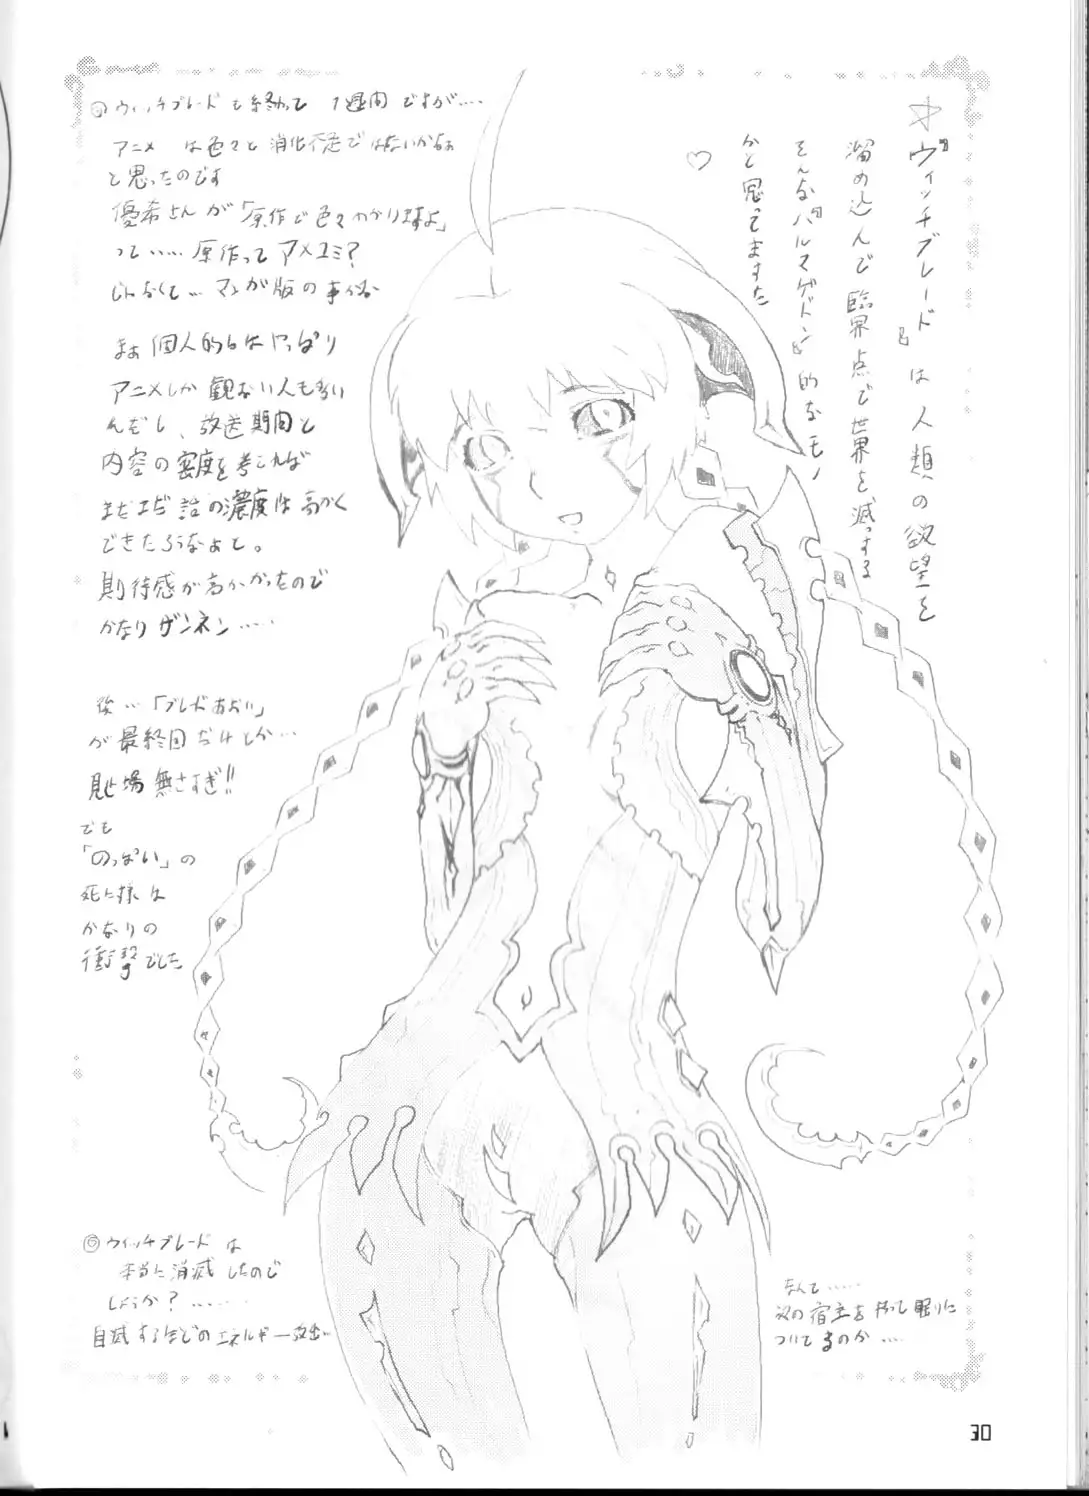 ◎ウィッチブレードも終わって 1週間ですが‥‥
アニメ は色々と消化不足ではないかなぁ
と思ったのです
優希さんが「原作で色々わかりますよ」
って‥‥‥原作ってアメコミ?
じゃなくて‥マンガ版の事かな
まぁ個人的にはやっぱり
アニメしか観ない人も多い
んだし、放送期間と
内容の密度を考えれば
まだまだ話の濃度は高かく
できたろうなぁと。
期待感が高かかったので
かなりザンネン‥‥
後‥「ブレードあおい」
が最終回だけとか‥
見せ場無さすぎ!!
でも
「のっぱい」の
死に様は
かなりの
衝撃でした
☆『ヴィッチブレード』は人類の欲望を
溜め込んで臨界点で世界を滅っする
そんな『ハルマゲドン』的なモノ
かと思ってますた
♡
◎ウィッチブレードは
本当に消滅したので
しょうか?‥‥‥‥
自滅するほどのエネルギー放出‥
なんて‥‥‥
次の宿主を待って眠りに
ついてるのか‥‥
30